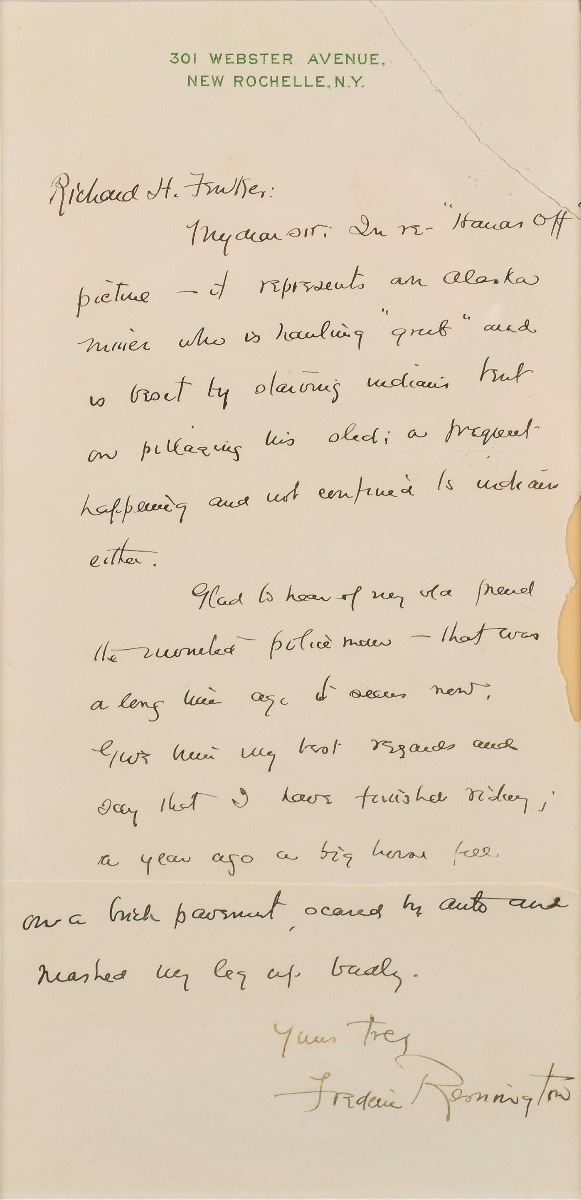 301 WEBSTER AVENUE,
NEW ROCHELLE, N.Y.
Richard H.
My dear sir: In re- "Hands Off"
picture — it represents an Alaska
miner who is hauling "grub" and
is beset by starving indians bent
on pillaging his sled; a frequent
happening and not confined to indians
either.
Glad to hear of my old friend
the mounted police man — that was
a long time ago it seems now.
Give him my best regards and
say that I have finished riding;
a year ago a big horse fell
on a brick pavement, scared by auto and
mashed my leg up badly.
Yours trly
Frederic Remington